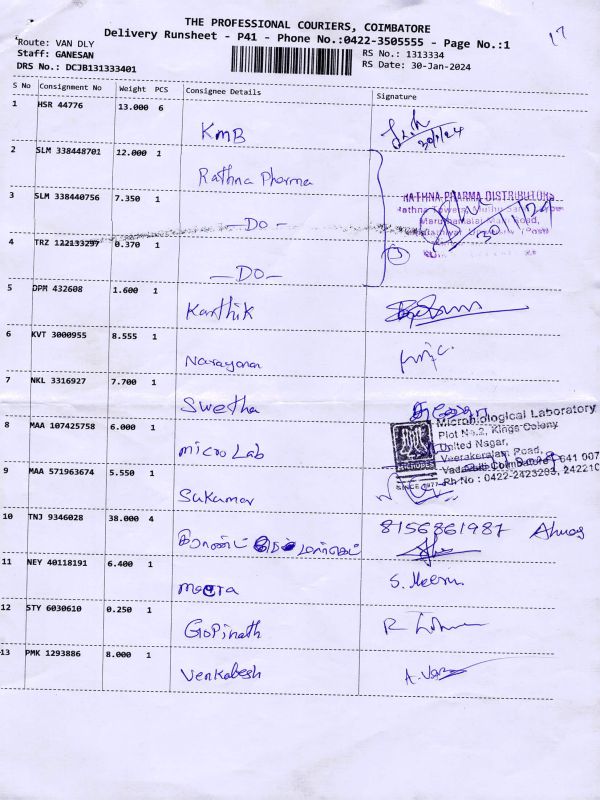 THE PROFESSIONAL COURIERS, COIMBATORE
Delivery Runsheet - P41 - Phone No.:0422-3505555 - Page No.:1
17
Route: VAN DLY
RS No.: 1313334
Staff: GANESAN
RS Date: 30-Jan-2024
DRS No.: DCJB131333401
S No Consignment No Weight PCS Consignee Details Signature
1 HSR 44776 13.000 6 KMB 30/1/24
2 SLM 338448701 12.000 1 Rathna Pharma
RATHNA PHARMA DISTRIBUTORS
3 SLM 338440756 7.350 1 — DO — 30/1/24
4 TRZ 122133297 0.370 1 — DO — 3
5 DPM 432608 1.600 1 Karthik
6 KVT 3000955 8.555 1 Narayanan
7 NKL 3316927 7.700 1 Swetha
8 MAA 107425758 6.000 1 micro Lab
Microbiological Laboratory
Plot No.2, Kings Colony
United Nagar,
Veerakeralam Road,
Vadavalli Coimbatore 641 007
Ph No : 0422-2423203, 242210
SINCE 1977
9 MAA 571963674 5.550 1 Sukumar
10 TNJ 9346028 38.000 4 8156861987
11 NEY 40118191 6.400 1 meera S. Meera
12 STY 6030610 0.250 1 Gopinath
13 PMK 1293886 8.000 1 Venkatesh